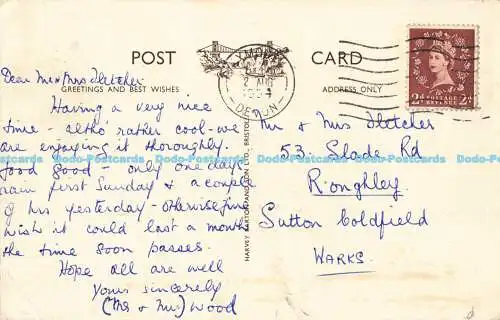 POST CARD
GREETINGS AND BEST WISHES
ADDRESS ONLY
Dear Mr & Mrs Fletcher
Having a very nice
time - altho' rather cool - we
are enjoying it thoroughly.
food good - only one day's
rain first Sunday & a couple
of hrs yesterday - otherwise fine
wish it could last a month
the time soon passes.
Hope all are well
Yours sincerely
(Mr & Mrs) Wood
HARVEY BARTON AND SON LTD., BRISTOL
AUG
DEVON
POSTAGE
REVENUE
2d 2d
Mr & Mrs Fletcher
53, Slade Rd
Roughley
Sutton Coldfield
WARKS.
Dodo-Postcards Dodo-Postcards Dodo-Postcards Dodo-Postcards Dodo-Postcards